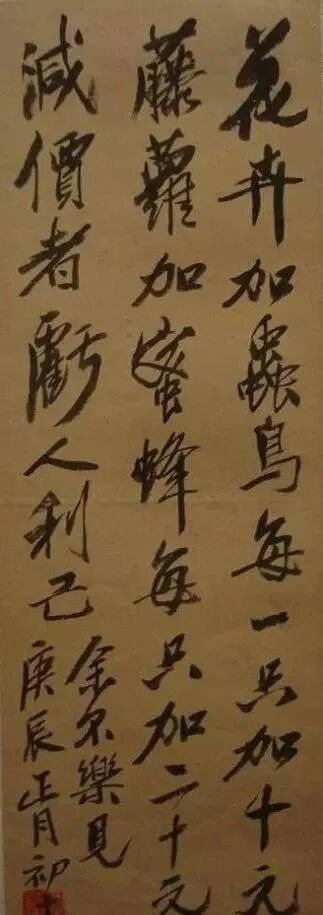 花卉加蟲鳥每一只加十元
藤蘿加蜜蜂每只加二十元
減價者虧人利己
余不樂見
庚辰正月初十